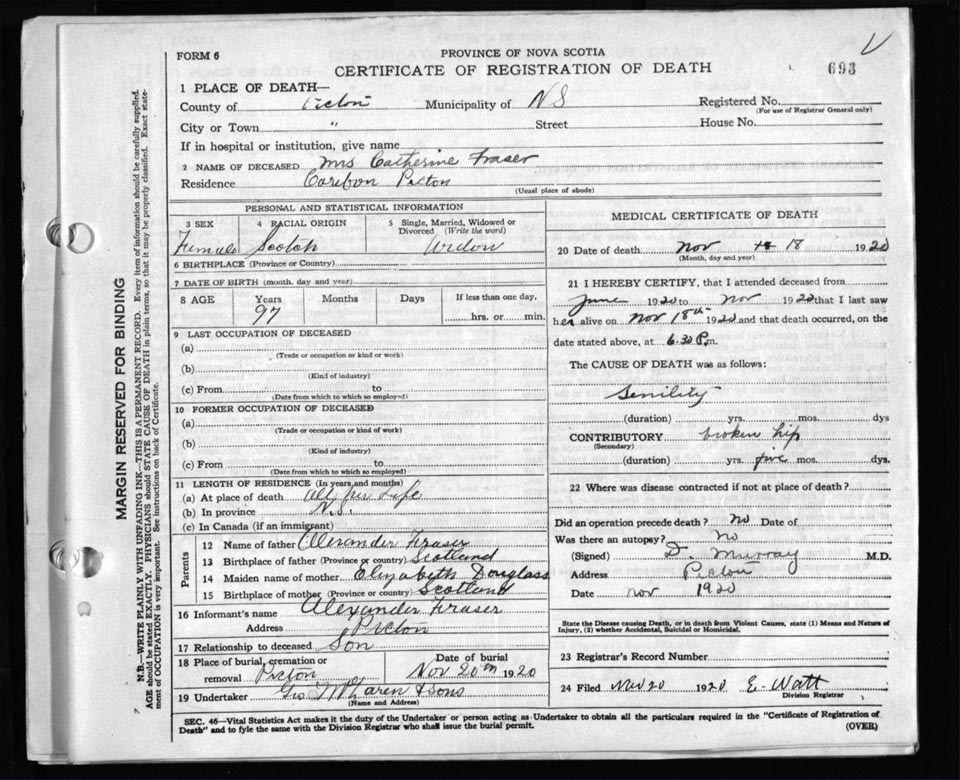 FORM 6
PROVINCE OF NOVA SCOTIA
CERTIFICATE OF REGISTRATION OF DEATH
693
1 PLACE OF DEATH—
County of Pictou Municipality of N S Registered No.
(For use of Registrar General only)
City or Town " Street House No.
If in hospital or institution, give name
2 NAME OF DECEASED Mrs Catherine Fraser
Residence Caribou Pictou
(Usual place of abode)
PERSONAL AND STATISTICAL INFORMATION
3 SEX 4 RACIAL ORIGIN 5 Single, Married, Widowed or Divorced (Write the word)
Female Scotch Widow
6 BIRTHPLACE (Province or Country)
7 DATE OF BIRTH (month, day and year)
8 AGE Years Months Days If less than one day,
97 hrs. or min.
9 LAST OCCUPATION OF DECEASED
(a)
(Trade or occupation or kind or work)
(b)
(Kind of industry)
(c) From to
(Date from which to which so employed)
10 FORMER OCCUPATION OF DECEASED
(a)
(Trade or occupation or kind of work)
(b)
(Kind of industry)
(c) From to
(Date from which to which so employed)
11 LENGTH OF RESIDENCE (In years and months)
(a) At place of death all her Life
(b) In province N.S.
(c) In Canada (if an immigrant)
Parents
12 Name of father Alexander Fraser
13 Birthplace of father (Province or country) Scotland
14 Maiden name of mother Elizabeth Douglass
15 Birthplace of mother (Province or country) Scotland
16 Informant's name Alexander Fraser
Address Pictou
17 Relationship to deceased Son
18 Place of burial, cremation or removal Pictou Date of burial Nov 20th 1920
19 Undertaker Geo McLaren & Sons
(Name and Address)
MEDICAL CERTIFICATE OF DEATH
20 Date of death Nov 18 1920
(Month, day and year)
21 I HEREBY CERTIFY, that I attended deceased from
June 1920 to Nov 1920 that I last saw
her alive on Nov 18th 1920 and that death occurred, on the
date stated above, at 6.30 P.m.
The CAUSE OF DEATH was as follows:
Senility
(duration) yrs. mos. dys
CONTRIBUTORY broken hip
(Secondary)
(duration) yrs. five mos. dys.
22 Where was disease contracted if not at place of death?
Did an operation precede death? no Date of
Was there an autopsy? No
(Signed) Murray M.D.
Address Pictou
Date Nov 1920
State the Disease causing Death, or in death from Violent Causes, state (1) Means and Nature of
Injury, (2) whether Accidental, Suicidal or Homicidal.
23 Registrar's Record Number
24 Filed Nov 20 1920 E. Watt
Division Registrar
SEC. 46—Vital Statistics Act makes it the duty of the Undertaker or person acting as Undertaker to obtain all the particulars required in the "Certificate of Registration of
Death" and to fyle the same with the Division Registrar who shall issue the burial permit.
(OVER)
MARGIN RESERVED FOR BINDING
N.B.—WRITE PLAINLY WITH UNFADING INK—THIS IS A PERMANENT RECORD. Every item of information should be carefully supplied.
AGE should be stated EXACTLY. PHYSICIANS should STATE CAUSE OF DEATH in plain terms, so that it may be properly classified. Exact statement of OCCUPATION is very important. See instructions on back of Certificate.